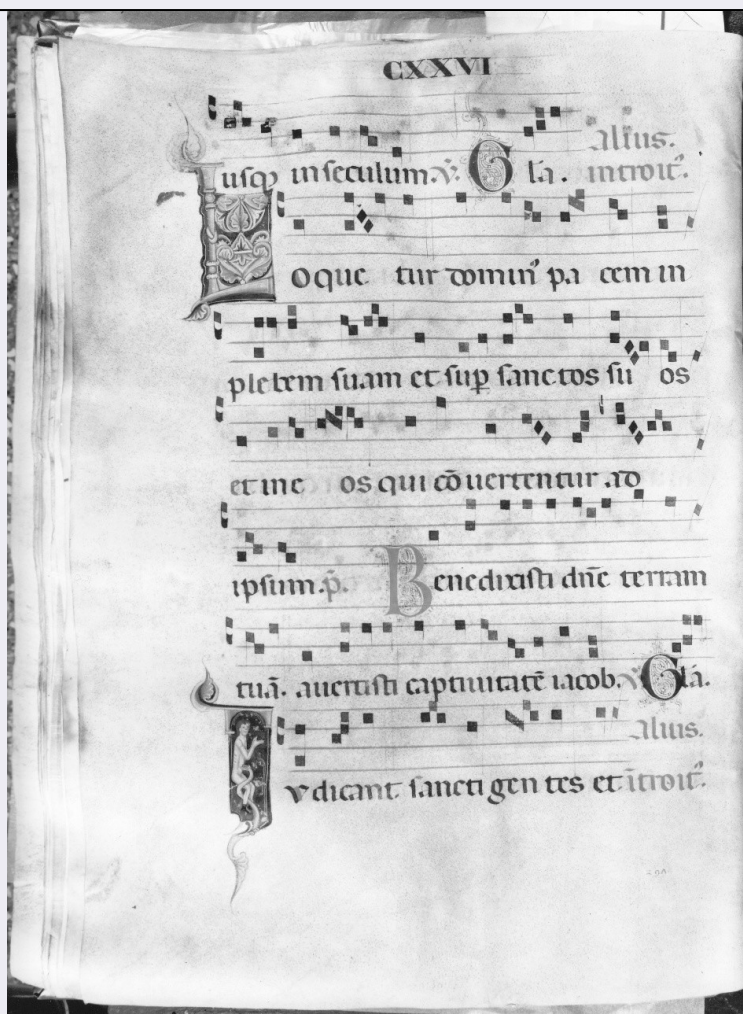 CXXVI
Alius.
iusq in seculum. V. Gla. introit᾽.
Loque tur domin᾽ pa cem in
plebem suam et sup sanctos su os
et in e os qui cōuertentur ad
ipsum. p̄. Benedixisti dn̄e terram
tuā. auertisti captiuitatē iacob. V. Gla.
alius.
Iudicant sancti gen tes et ītroit᾽.